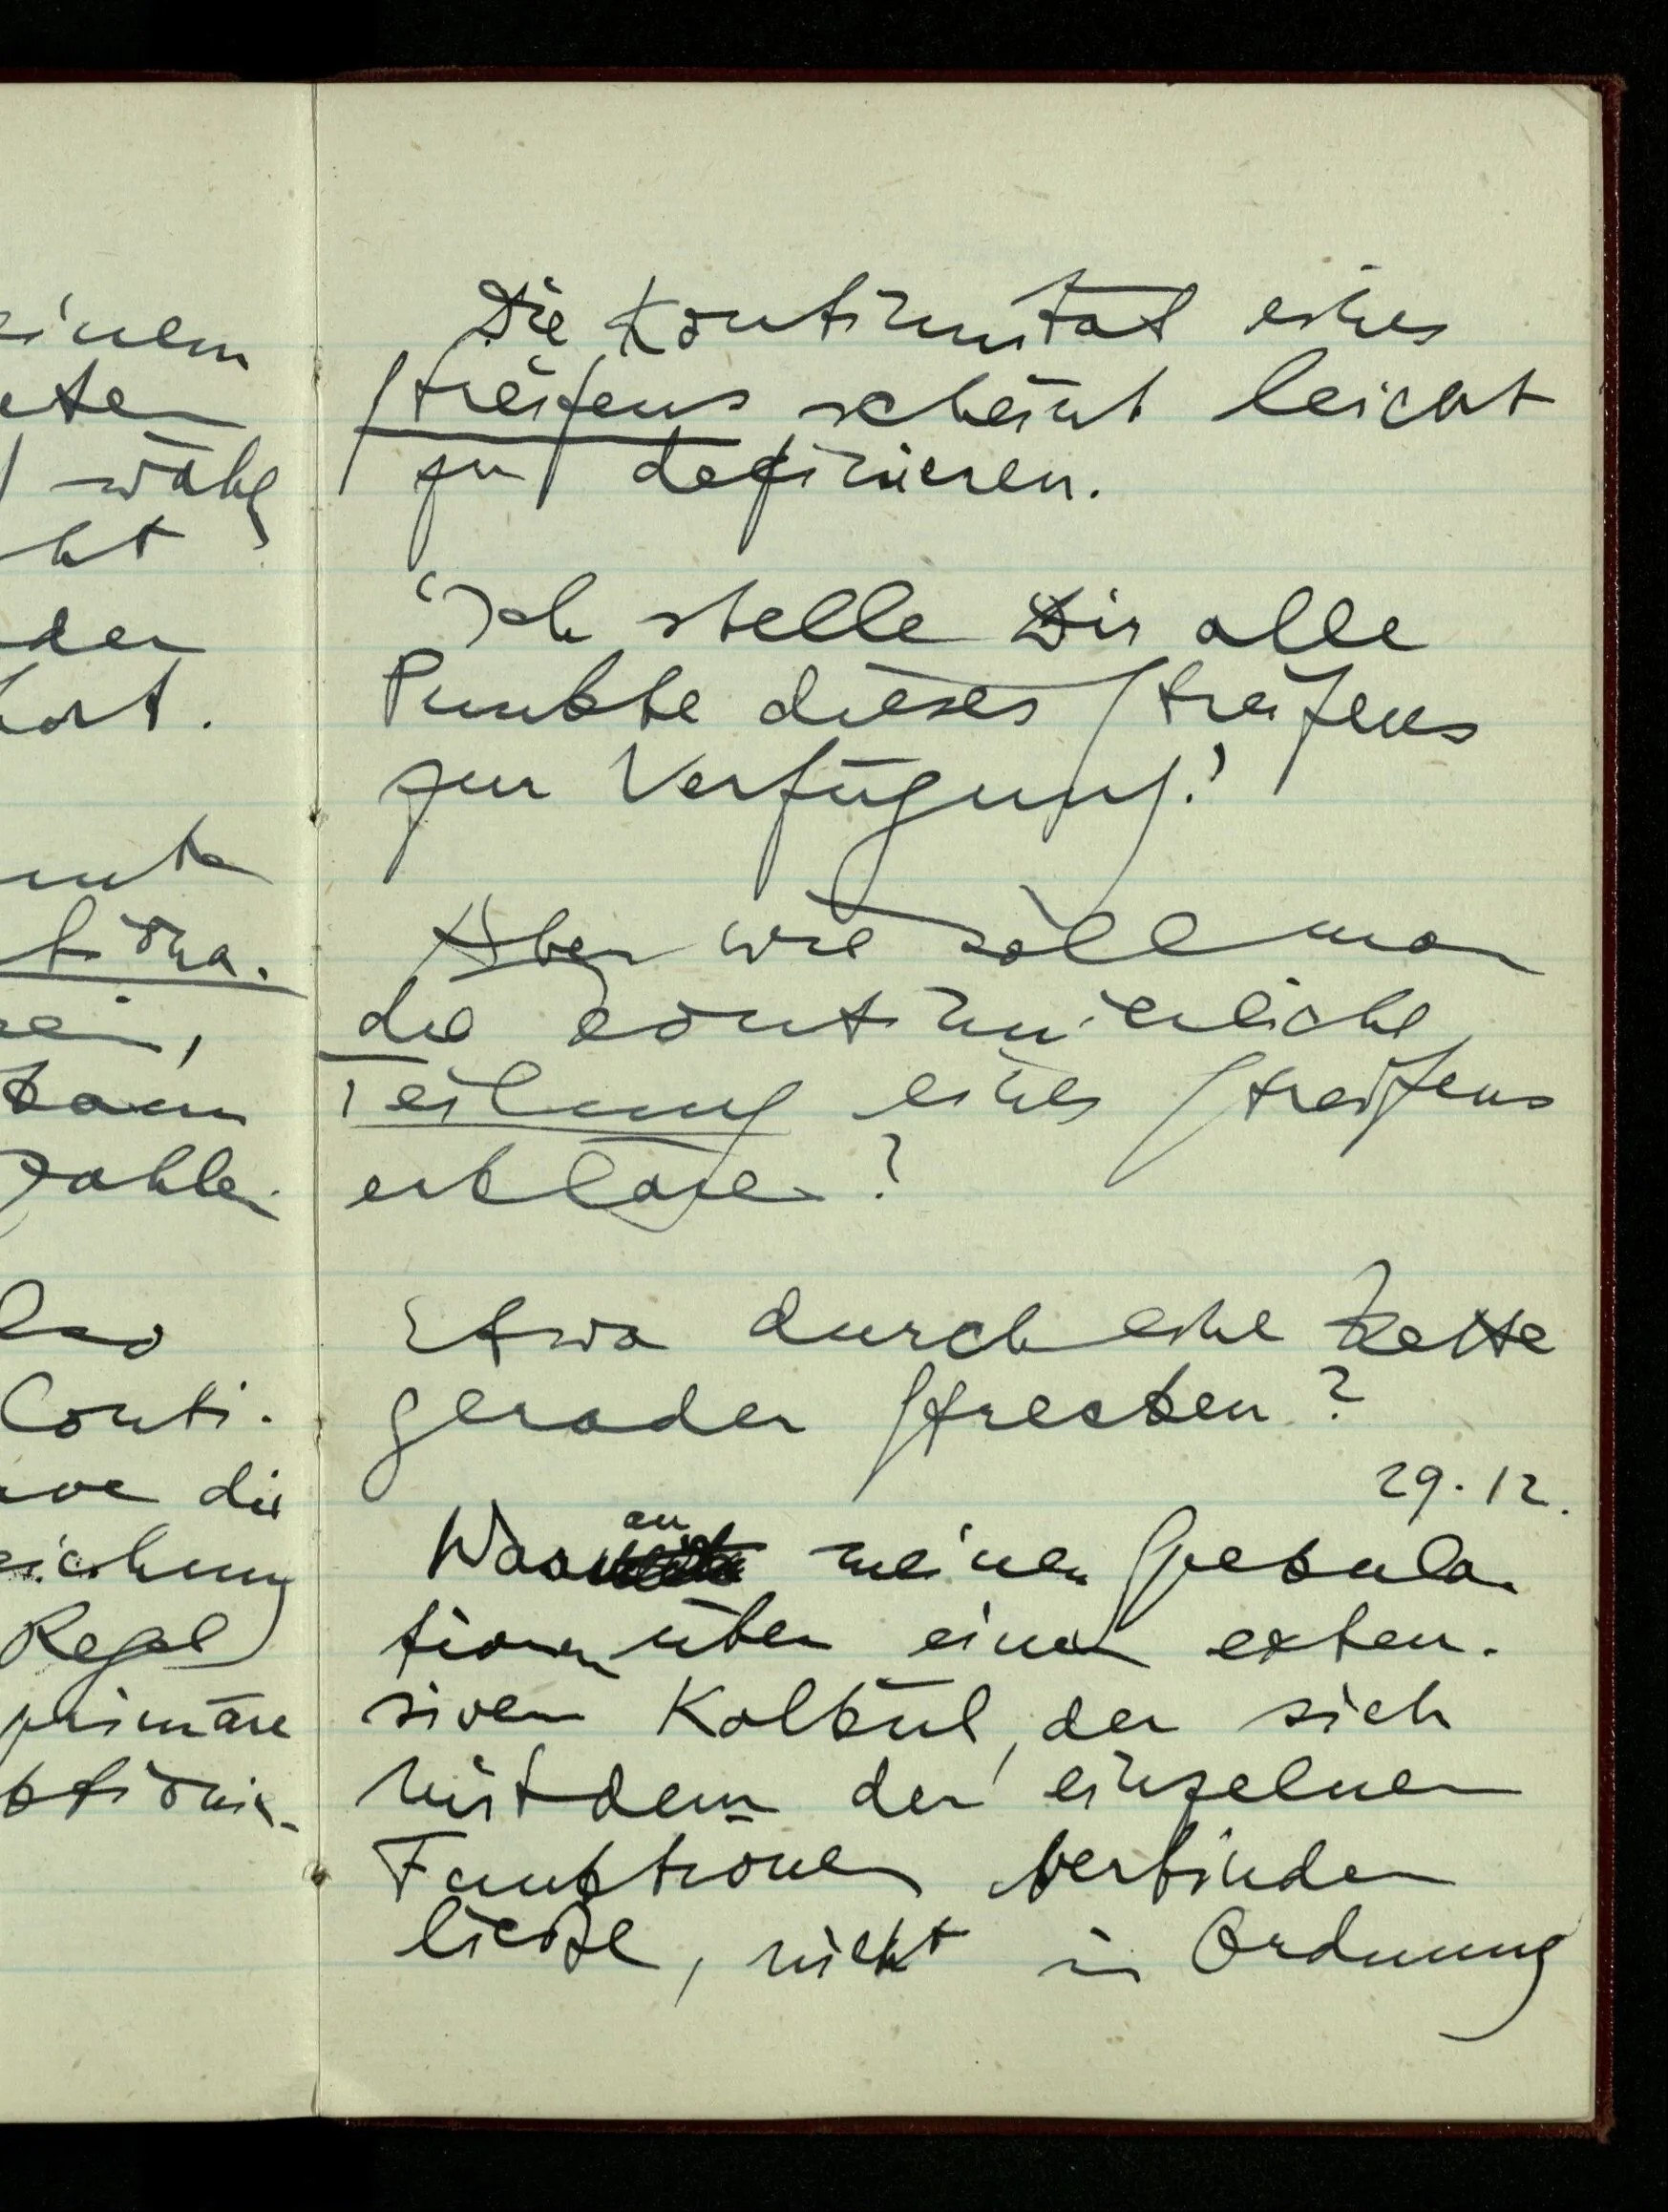 einem
wähl
der
Zahlen
Conti-
die
Regel
primäre
Die Kontinuität eines
Streifens scheint leicht
zu definieren.
'Ich stelle Dir alle
Punkte dieses Streifens
zur Verfügung.'
Aber wie soll man
die continuierliche
Teilung eines Streifens
erklären?
Etwa durch eine Kette
gerader Strecken?
29.12.
an
Was meinen Spekula-
tionen über einen exten-
siven Kalkül, der sich
mit dem der einzelnen
Funktionen verbinden
ließe, nicht in Ordnung